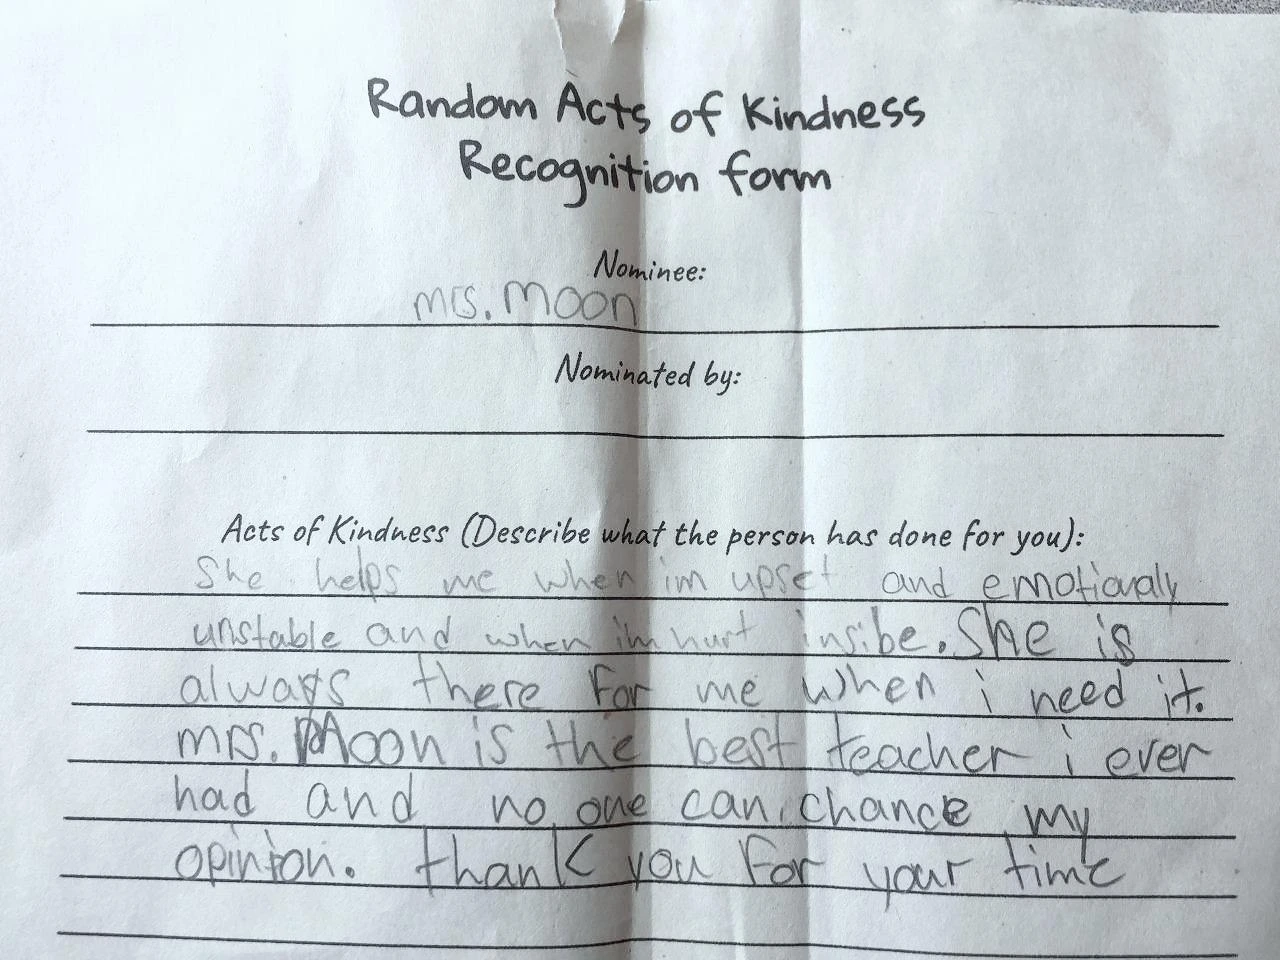 Random Acts of Kindness
Recognition form
Nominee:
mrs. Moon
Nominated by:
Acts of Kindness (Describe what the person has done for you):
She helps me when im upset and emotionaly
unstable and when im hurt insibe. She is
always there for me when i need it.
mrs. Moon is the best teacher i ever
had and no one can chance my
opinion. thank you for your time